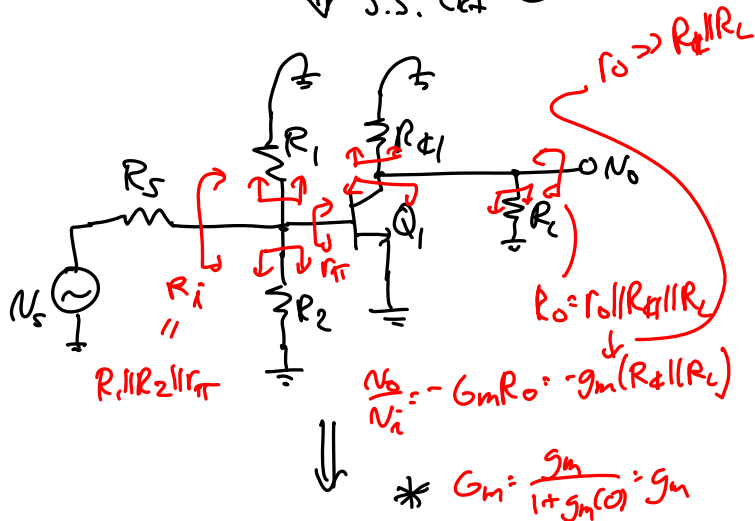 S.S. CKT
ro >> R¢||RL
R1
R¢1
RS
No
RL
Q1
rπ
Ri
Ns
R2
Ro = ro||R¢1||RL
"
R1||R2||rπ
No/Ni = -GmRo = -gm(R¢||RL)
* Gm = gm/(1+gm(0)) = gm